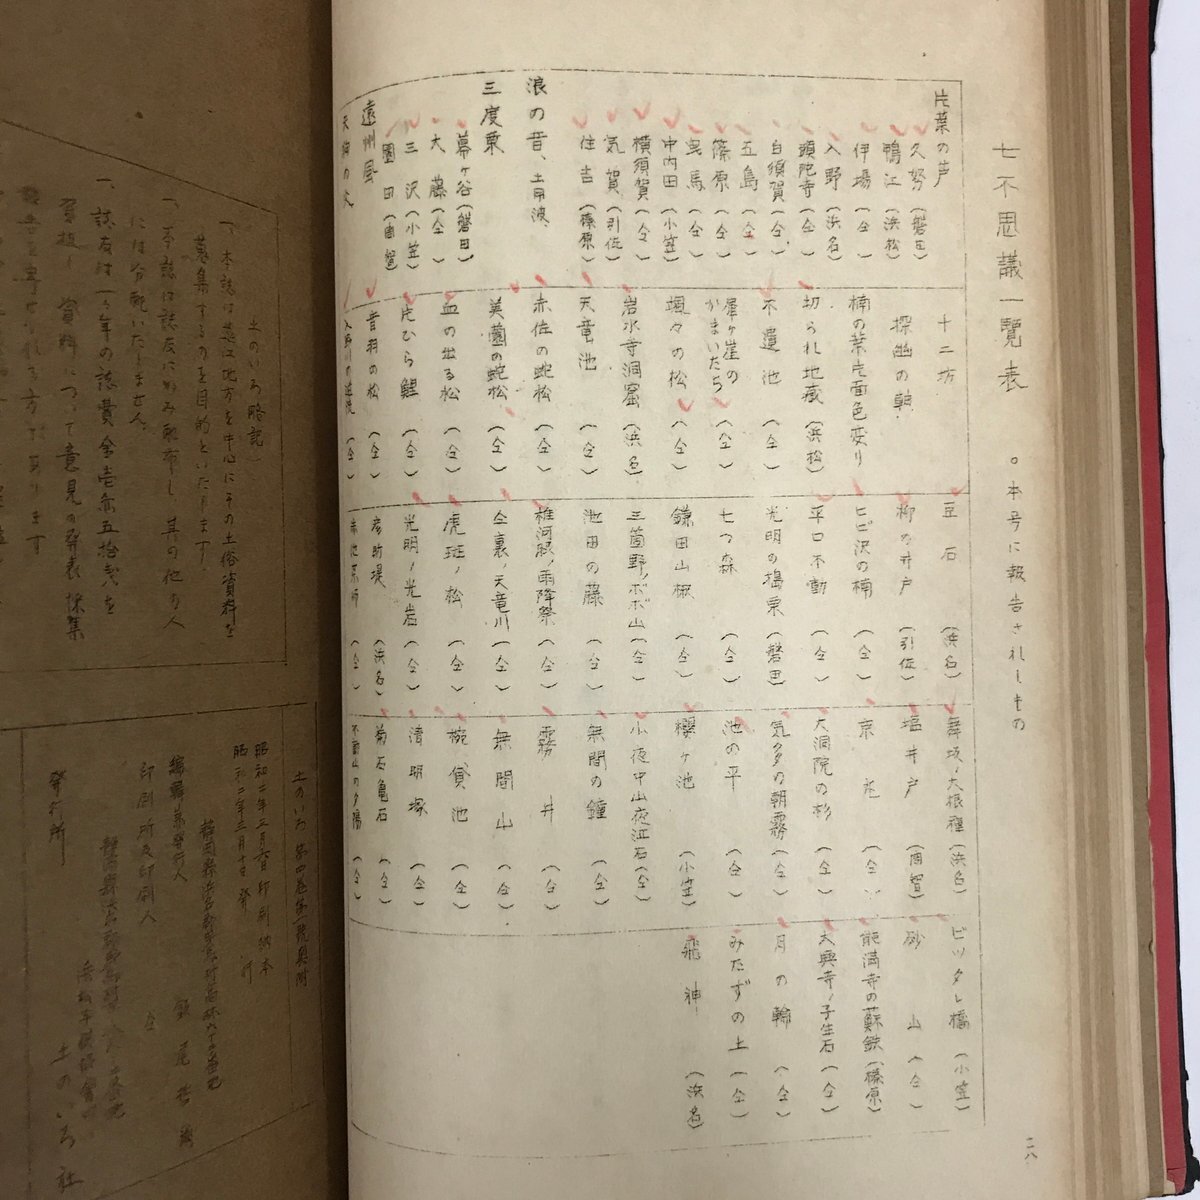 七不思議一覧表　○本号に報告されしもの
片葉の芦
久努（磐田）
鴨江（浜松）
伊場（仝）
入野（浜名）
頭陀寺（仝）
白須賀（仝）
五島（仝）
篠原（仝）
曳馬（仝）
中内田（小笠）
横須賀（仝）
気賀（引佐）
住吉（榛原）
浪の音、土用波、
三度栗
幕ヶ谷（磐田）
大藤（仝）
三沢（小笠）
園田（周智）
遠州風
天狗の火
十二坊
探幽の朝
楠の葉片面色変り
切られ地蔵（浜松）
不遣池（仝）
屋ヶ崖のかまいたち（仝）
颯々の松（仝）
岩水寺洞窟（浜名）
天竜池（仝）
赤佐の蛇松（仝）
美薗の蛇松（仝）
血の出る松（仝）
片ひら鯉（仝）
音羽の松（仝）
豆石（浜名）
柳の井戸（引佐）
ヒビ沢の楠（仝）
平口不動（仝）
光明の塲栗（磐田）
七つ森（仝）
鎌田山椒（仝）
三箇野ノボボ山（仝）
池田の藤（仝）
椎河脈ノ雨降祭（仝）
仝裏ノ天竜川（仝）
虎斑ノ松（仝）
光明ノ光岩（仝）
彦助堤（浜名）
舞坂ノ大根種（浜名）
塩井戸（周智）
京丸（仝）
大洞院の杉（仝）
気多の朝霧（仝）
池の平（仝）
櫻ヶ池（小笠）
小夜中山夜泣石（仝）
無間の鐘（仝）
霧井（仝）
無間山（仝）
椀貸池（仝）
清明塚（仝）
菊石亀石（仝）
不動山の夕陽（仝）
ビッタレ橋（小笠）
砂山（仝）
能満寺の蘇鉄（榛原）
大興寺ノ子生石（仝）
月の輪（仝）
みたずの土（仝）
飛神（浜名）
二八
土のいろ略記
一、本誌は浜江地方を中心にその土俗資料を
蒐集するのを目的といたします
一、本誌は誌友にのみ配布し、其の他の人
には分配いたしません、
一、誌友は一ヶ年の誌費金壱円五拾銭を
土のいろ 第四巻第一號奥附
昭和二年三月六日印刷納本
昭和二年三月十日発行
編輯兼発行人
印刷所及印刷人
発行所　土のいろ社